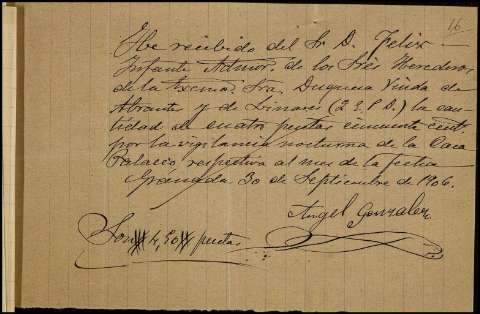 16
He recibido del Sr. D. Felix
Infante Admor. de los Sres Herederos
de la Excma. Sra. Duquesa Viuda de
Abrantes y de Linares (q. e. p. d.) la can-
tidad de cuatro pesetas cincuenta cent.
por la vigilancia nocturna de la Casa
Palacio respectiva al mes de la fecha
Granada 30 de Septiembre de 1906.
Angel Gonzalez
Son # 4,50 # pesetas